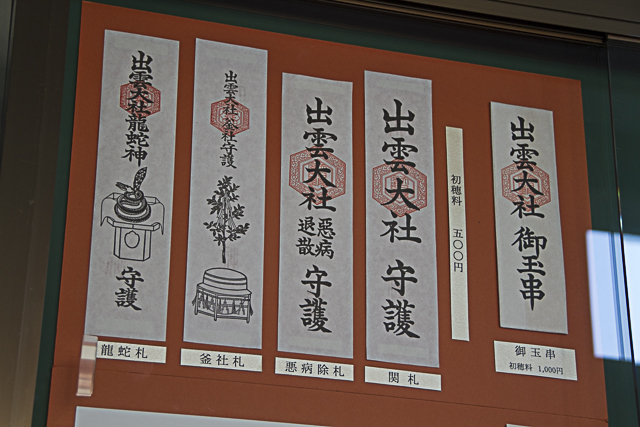 出雲大社龍蛇神
守護
龍蛇札
出雲大社釜社守護
釜社札
出雲大社
悪病
退散
守護
悪病除札
出雲大社
守護
関札
初穂料 五〇〇円
出雲大社
御玉串
御玉串
初穂料 1,000円